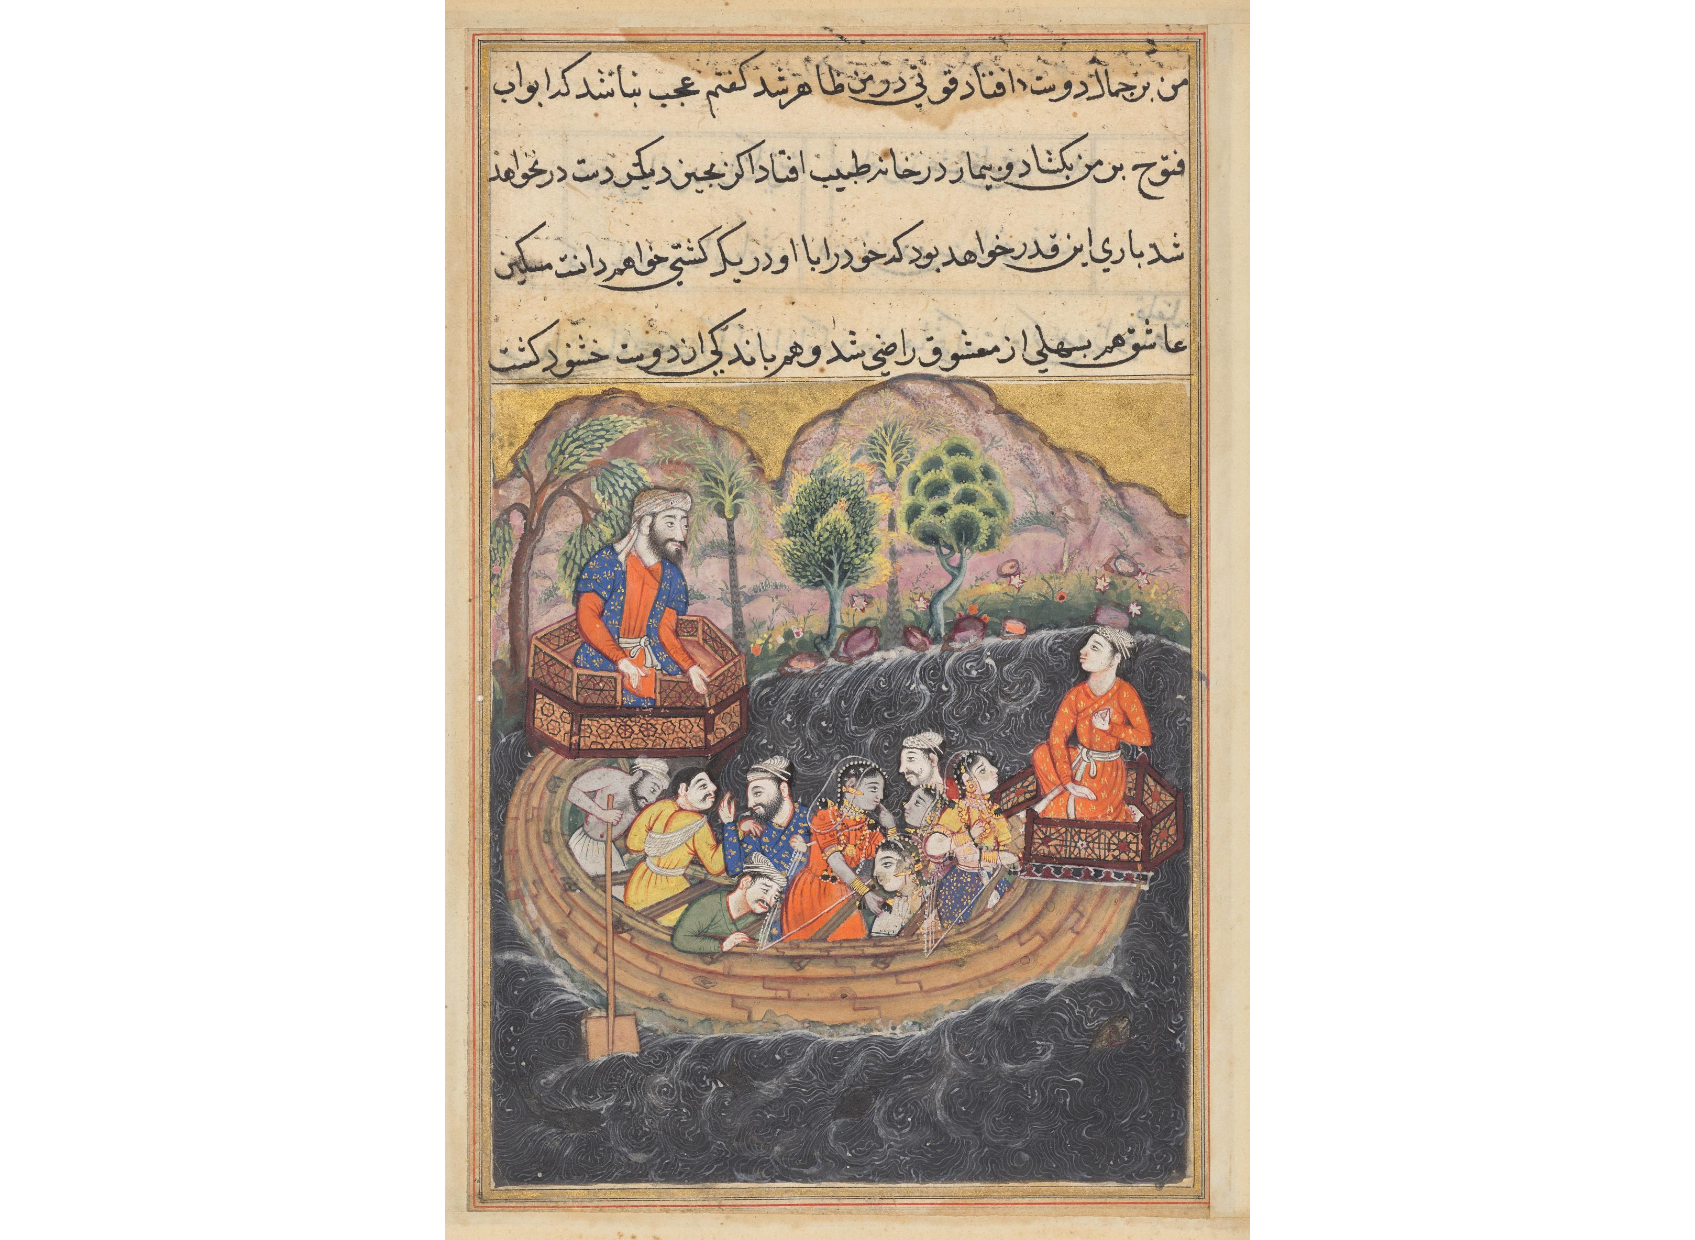 من بر جمال دوست افتاد قوتی در من ظاهر شد کفتم عجب نباشد که ابواب
فتوح بر من بکشاد و بیمار در خانه طبیب افتاد اکر بچیز دیکر دست در نخواهد
شد باری این قدر خواهد بود که خود را با او در یک کشتی خواهم دانست مسکین
عاشق هم بسهلی از معشوق راضی شد و هم باندکی از دوست خشنود کشت